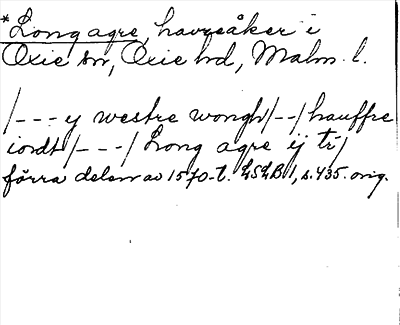 *Long agre, havreåker i
Oxie sn, Oxie hd, Malm. l.
/---y westre wongh/--/hauffre
iordt/---/Long agre ij tr/
förra delen av 1570-t. LSLB 1, s. 435. orig.